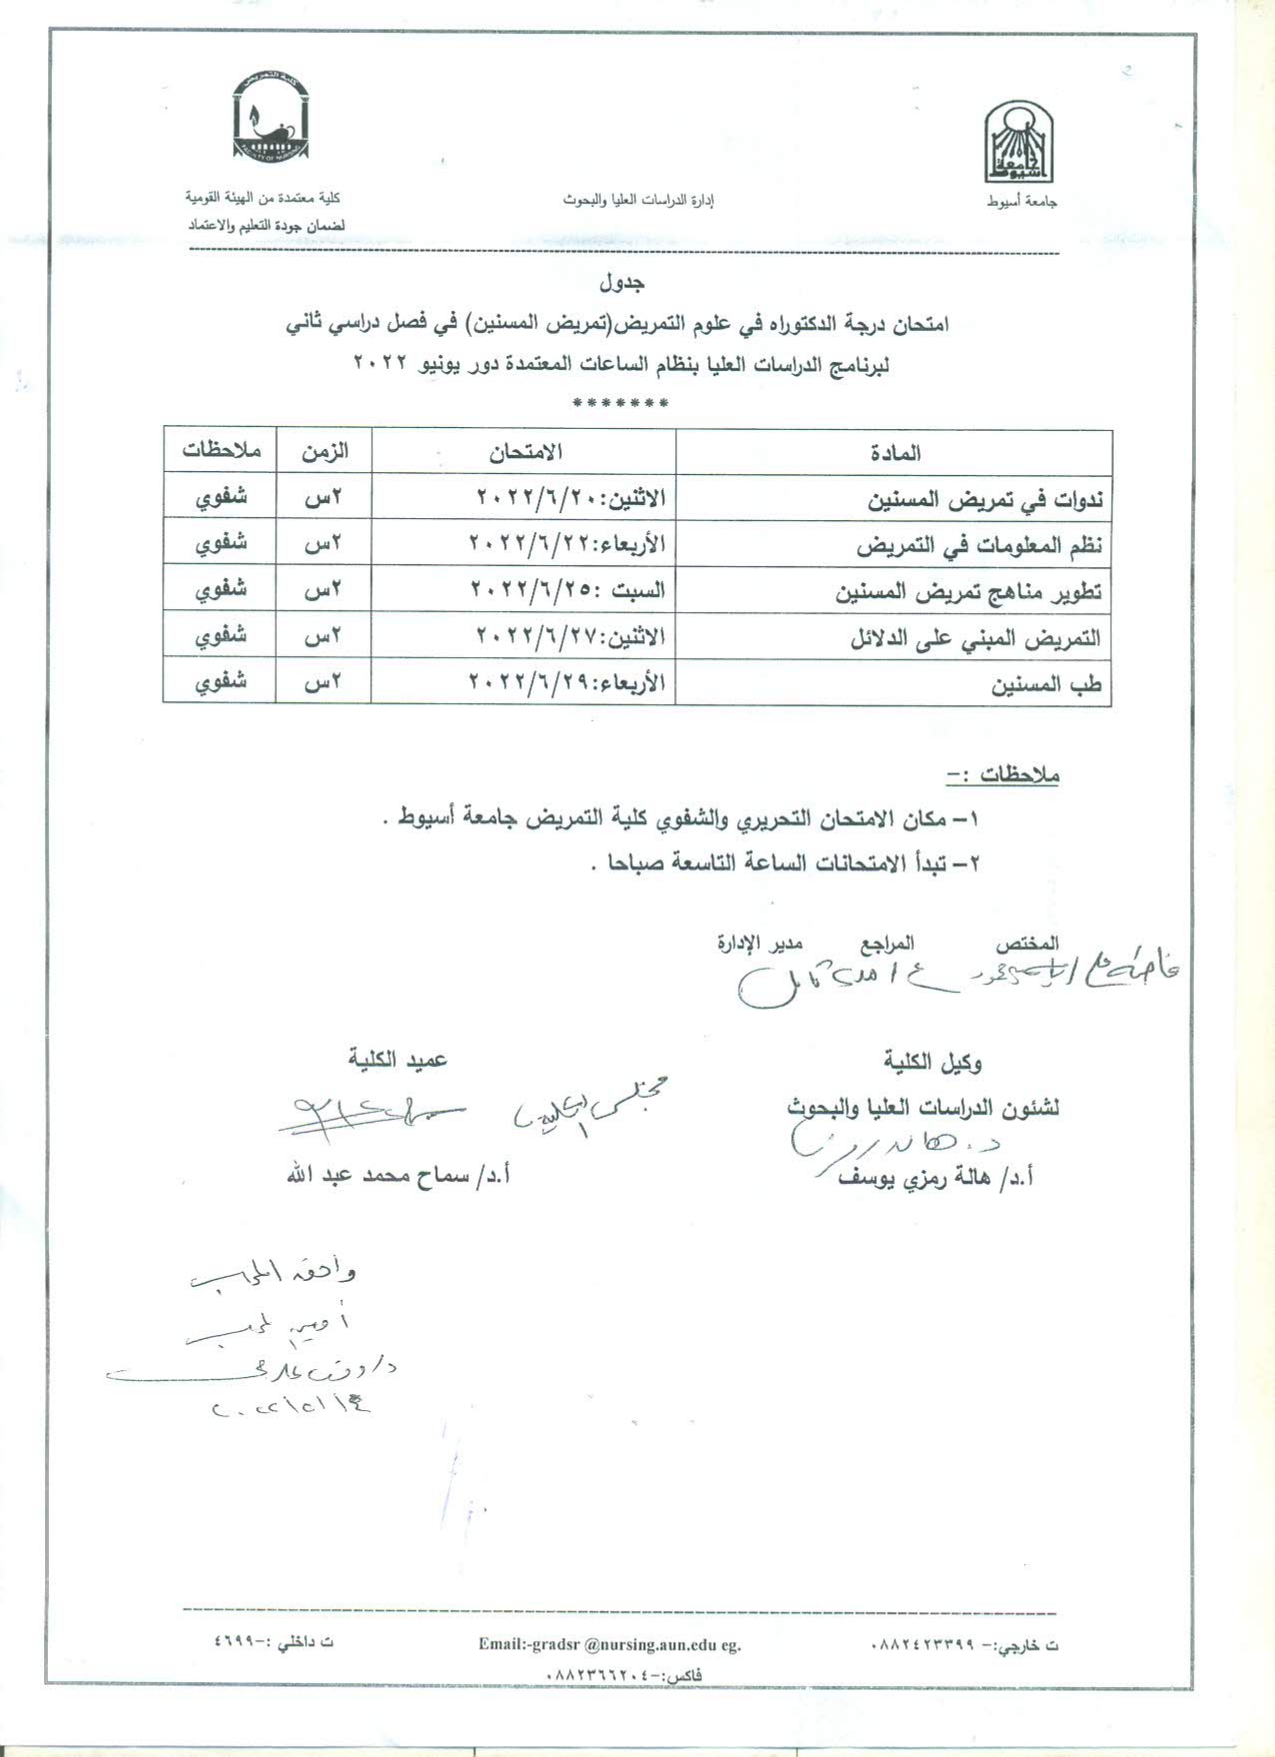 كلية التمريض
FACULTY OF NURSING
جامعة أسيوط
جامعة أسيوط
إدارة الدراسات العليا والبحوث
كلية معتمدة من الهيئة القومية
لضمان جودة التعليم والاعتماد
جدول
امتحان درجة الدكتوراه في علوم التمريض(تمريض المسنين) في فصل دراسي ثاني
لبرنامج الدراسات العليا بنظام الساعات المعتمدة دور يونيو ٢٠٢٢
*******
المادة الامتحان الزمن ملاحظات
ندوات في تمريض المسنين الاثنين:٢٠٢٢/٦/٢٠ ٢س شفوي
نظم المعلومات في التمريض الأربعاء:٢٠٢٢/٦/٢٢ ٢س شفوي
تطوير مناهج تمريض المسنين السبت :٢٠٢٢/٦/٢٥ ٢س شفوي
التمريض المبني على الدلائل الاثنين:٢٠٢٢/٦/٢٧ ٢س شفوي
طب المسنين الأربعاء:٢٠٢٢/٦/٢٩ ٢س شفوي
ملاحظات :-
١- مكان الامتحان التحريري والشفوي كلية التمريض جامعة أسيوط .
٢- تبدأ الامتحانات الساعة التاسعة صباحا .
المختص المراجع مدير الإدارة
وكيل الكلية عميد الكلية
لشئون الدراسات العليا والبحوث
مجلس الكلية
أ.د/ هالة رمزي يوسف أ.د/ سماح محمد عبد الله
وافق المجلس
أمين المجلس
ت خارجي:- ٠٨٨٢٤٢٣٣٩٩ Email:-gradsr @nursing.aun.edu eg. ت داخلي :-٤٦٩٩
فاكس:-٠٨٨٢٣٦٦٢٠٤